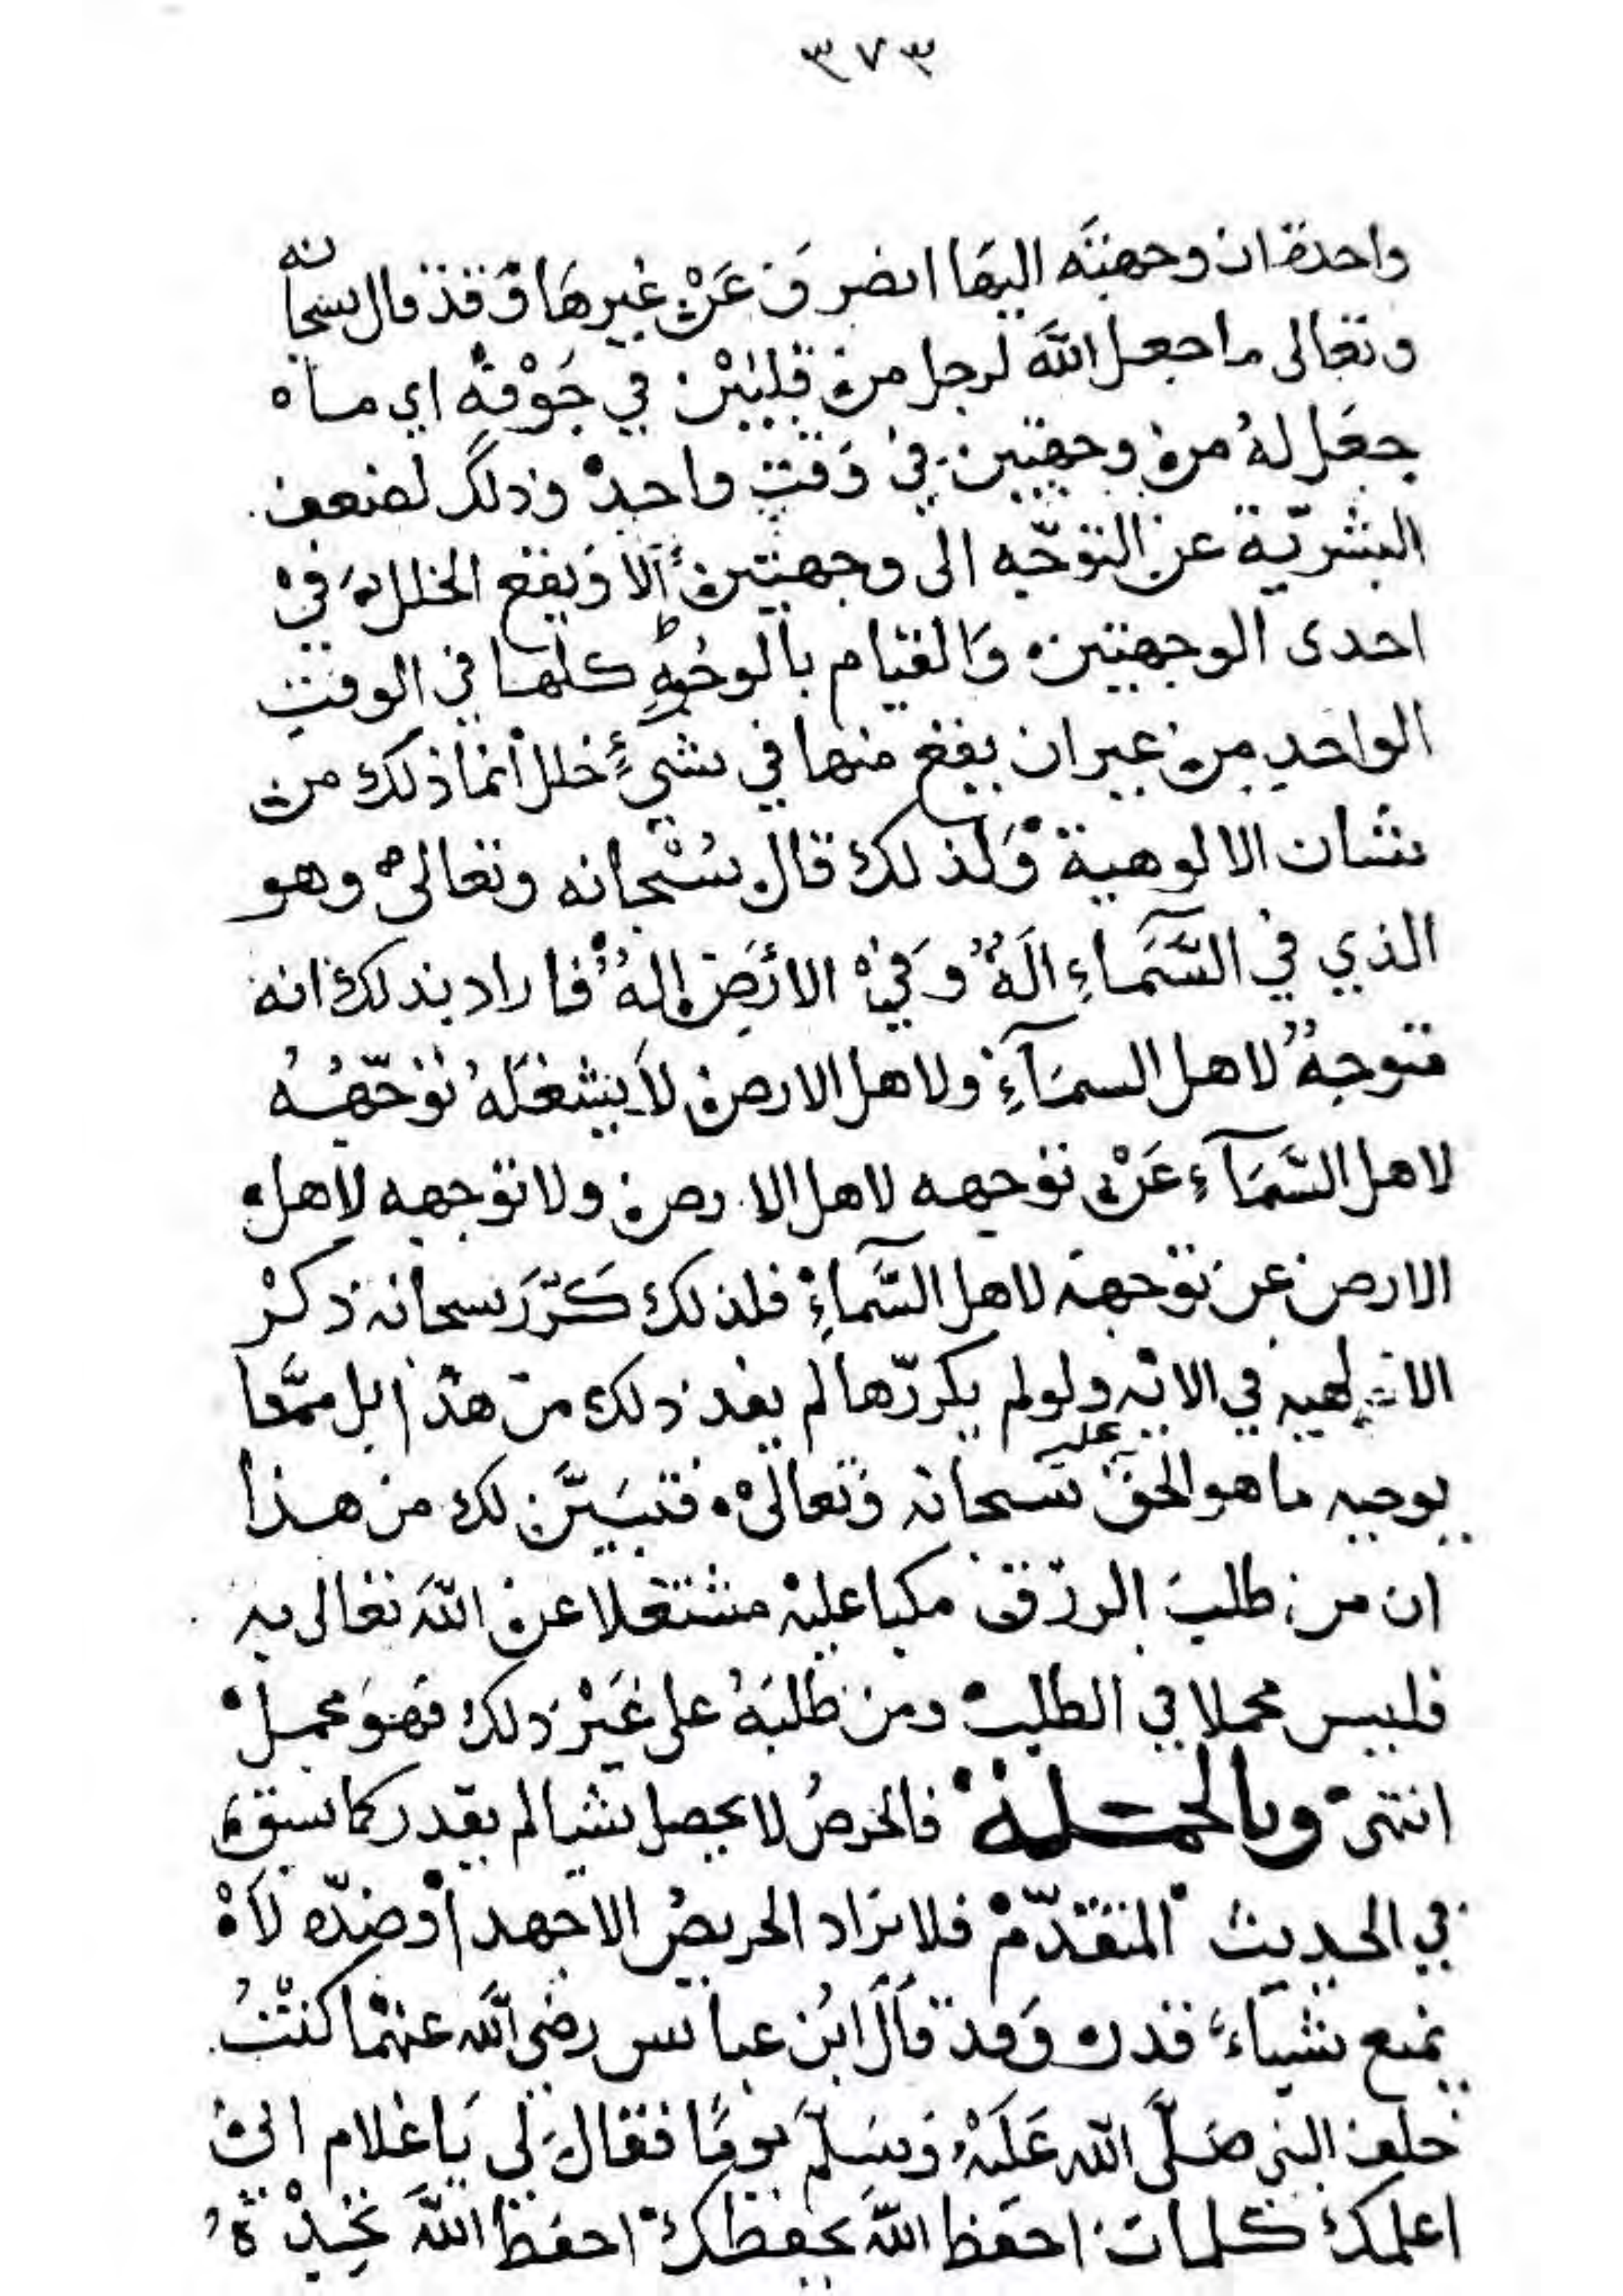 ٣٧٣
واحدة ان وجهته اليها انصرف عَنْ غيرها وَقد قال سبحانه
وتعالى ما جعل اللّه لرجل من قلبَيْن في جَوْفه اي ما
جعَل لهُ من وجهتين في وَقتٍ واحدْ وذلك لضعف
البشريّة عن التوجّه الى وجهتين الا وَيقع الخلل في
احدى الوجهتين وَالقيام بالوجُهِ كلها في الوقتِ
الواحدِ من غير ان يقع منها في شيءٍ خلل انما ذلك من
شان الالوهية وَلذلك قال سُبْحانه وتعالى وهو
الذي في السَّمَاءِ الَهٌ وَفي الارَضِ الهٌ فاراد بذلك انه
متوجهٌ لاهل السمَآءِ ولاهل الارض لا يشغَلهُ توَجّهُهُ
لاهل السَّمَآءِ عَنْ توَجهه لاهل الارض ولا توَجهه لاهل
الارض عن توَجهه لاهل السَّماءِ فلذلك كَرَّرَ سبحانه ذكْر
الالهيه في الايه ولو لم يكررّها لم يفد ذلك من هذا بل ممَّا
يوجبه ما هو الحق عليه سبحانه وَتعالى فتبَيَّن لك من هذا
ان من طلبَ الرزق مكبا عليهْ مشتغلا عن اللّه تعالى به
فليس مجملا في الطلب ومن طلبَهُ على غَيْر ذلك فهوَ مجمل
انتهى وبالجملة فالحرصُ لا يحصل شيا لم يقدر كما سبق
في الحديث المتقدّم فلا يزاد الحريصُ الا جهد اوْ ضدّه لا
يمنع شياءً قدر وَقد قاَلَ ابُن عباس رضي اللّه عنهما كنْتُ
خلف النبي صَلَّى اللّه عَلَيْهِ وَسَلَّمَ يومًا فقالَ لي يَا غلام اني
اعلمك كلمات احفَظ اللّه يحفظك احفَظ اللّهَ تَجِدْهُ